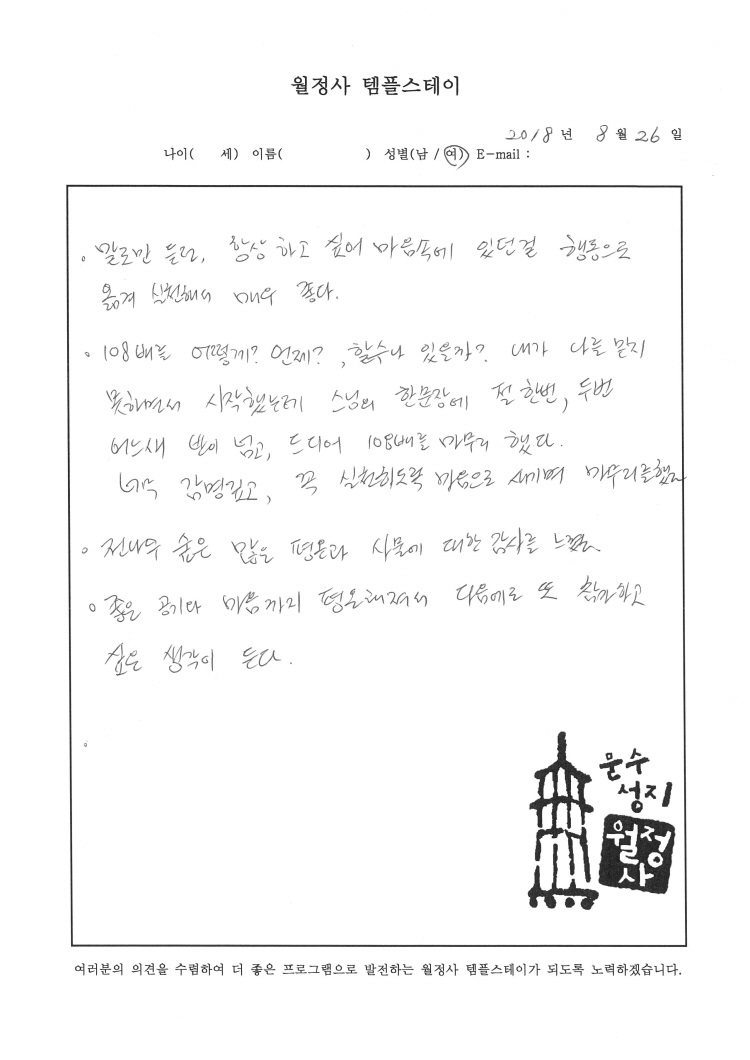 월정사 템플스테이
2018 년 8 월 26 일
나이( 세) 이름( ) 성별(남 / 여) E-mail :
。말로만 듣던, 항상 하고 싶어 마음속에 있던걸 행동으로
옮겨 실천해서 매우 좋다.
。108배를 어떻게? 언제? , 할수나 있을까? 내가 나를 믿지
못하면서 시작했는데 스님의 한문장에 절 한번, 두번
어느새 반이 넘고, 드디어 108배를 마무리 했다.
너무 감명깊고, 꼭 실천하도록 마음으로 새기며 마무리를했다
。전나무 숲은 많은 평온과 사물에 대한 감사를 느꼈다.
。좋은 공기와 마음까지 평온해져서 다음에도 또 참가하고
싶은 생각이 든다.
。
문수
성지
월정
사
여러분의 의견을 수렴하여 더 좋은 프로그램으로 발전하는 월정사 템플스테이가 되도록 노력하겠습니다.